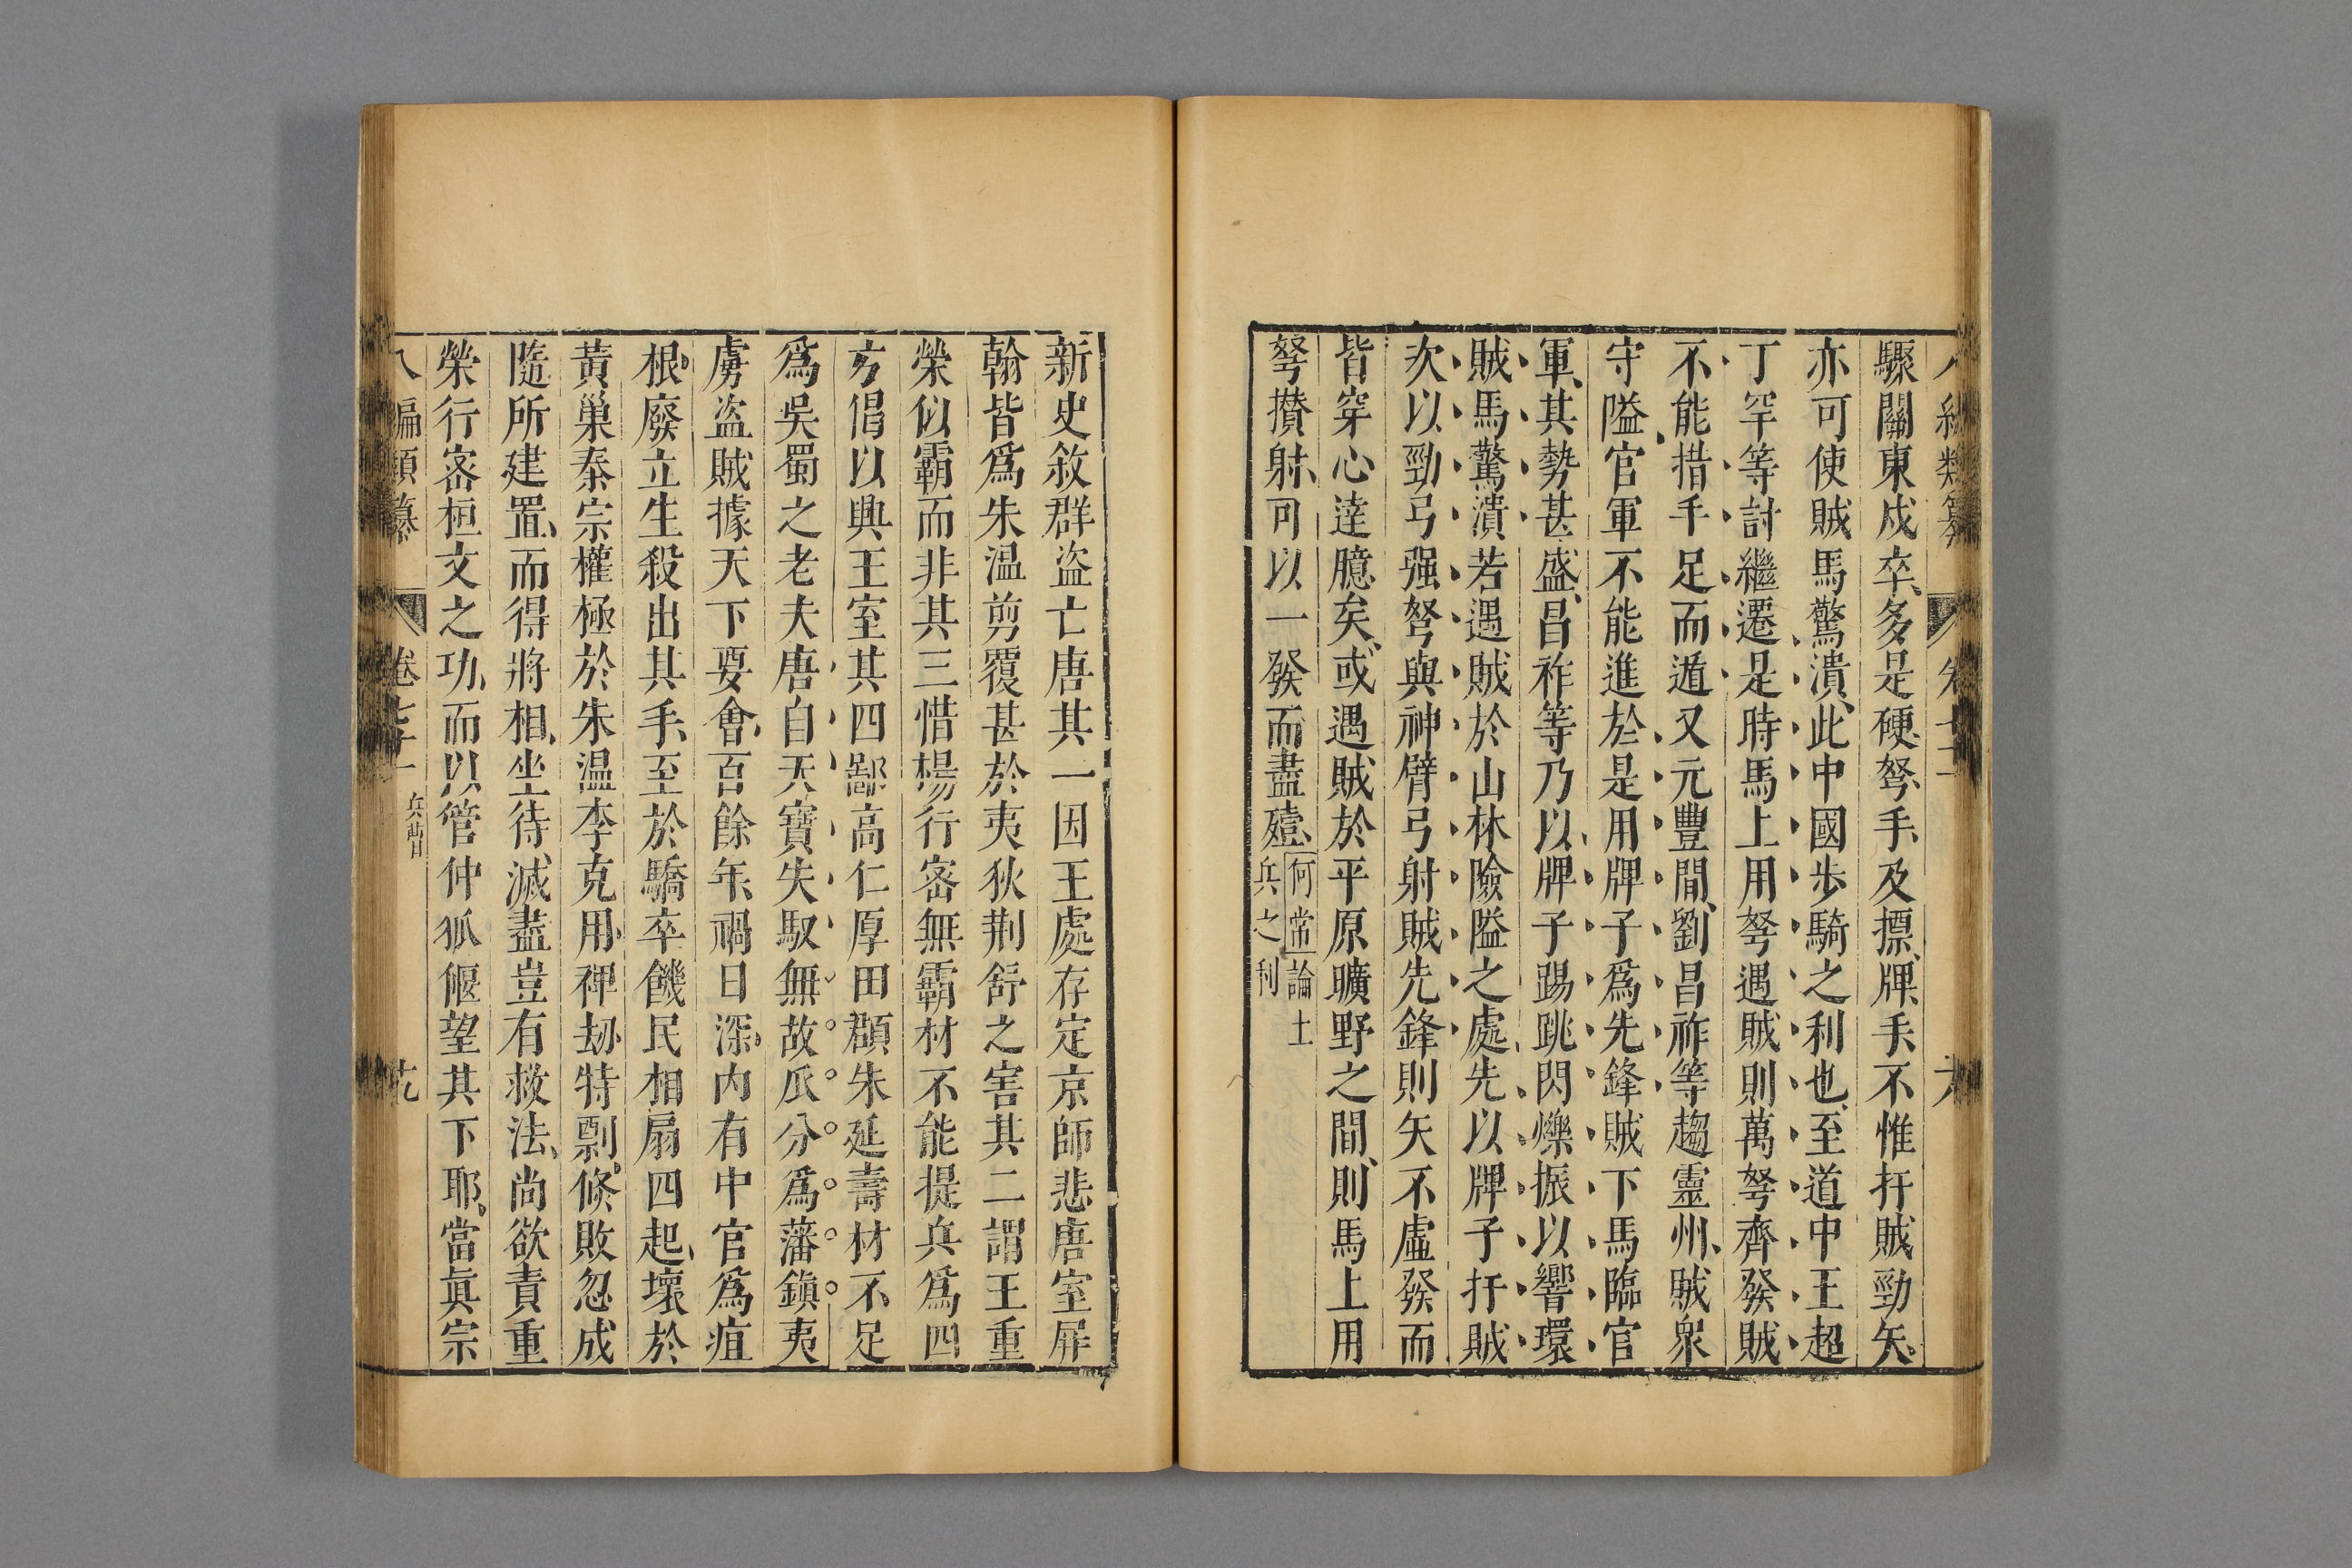 類纂
驟關東戍卒多是硬弩手及摽牌手不惟扞賊勁矢
亦可使賊馬驚潰此中國步騎之利也至道中王超
丁罕等討繼遷是時馬上用弩遇賊則萬弩齊發賊
不能措手足而遁又元豐間劉昌祚等趨靈州賊衆
守隘官軍不能進於是用牌子爲先鋒賊下馬臨官
軍其勢甚盛昌祚等乃以牌子踢跳閃爍振以響環
賊馬驚潰若遇賊於山林險隘之處先以牌子扞賊
次以勁弓强弩與神臂弓射賊先鋒則矢不虛發而
皆穿心達臆矣或遇賊於平原曠野之間則馬上用
弩攢射可以一發而盡殪
何常論士
兵之利
新史敘群盜亡唐其一因王處存定京師悲唐室屛
翰皆爲朱温剪覆甚於夷狄荆舒之害其二謂王重
榮似霸而非其三惜楊行密無霸材不能提兵爲四
方倡以興王室其四鄙高仁厚田頵朱延壽材不足
爲吳蜀之老夫唐自天寶失馭無故瓜分爲藩鎭夷
虜盜賊據天下要會百餘年禍日深内有中官爲疽
根廢立生殺出其手至於驕卒饑民相扇四起壞於
黃巢秦宗權極於朱温李克用禪劫特剽倏敗忽成
隨所建置而得將相坐待滅盡豈有救法尚欲責重
榮行密桓文之功而以管仲狐偃望其下耶當眞宗
八編類纂
卷
兵曹